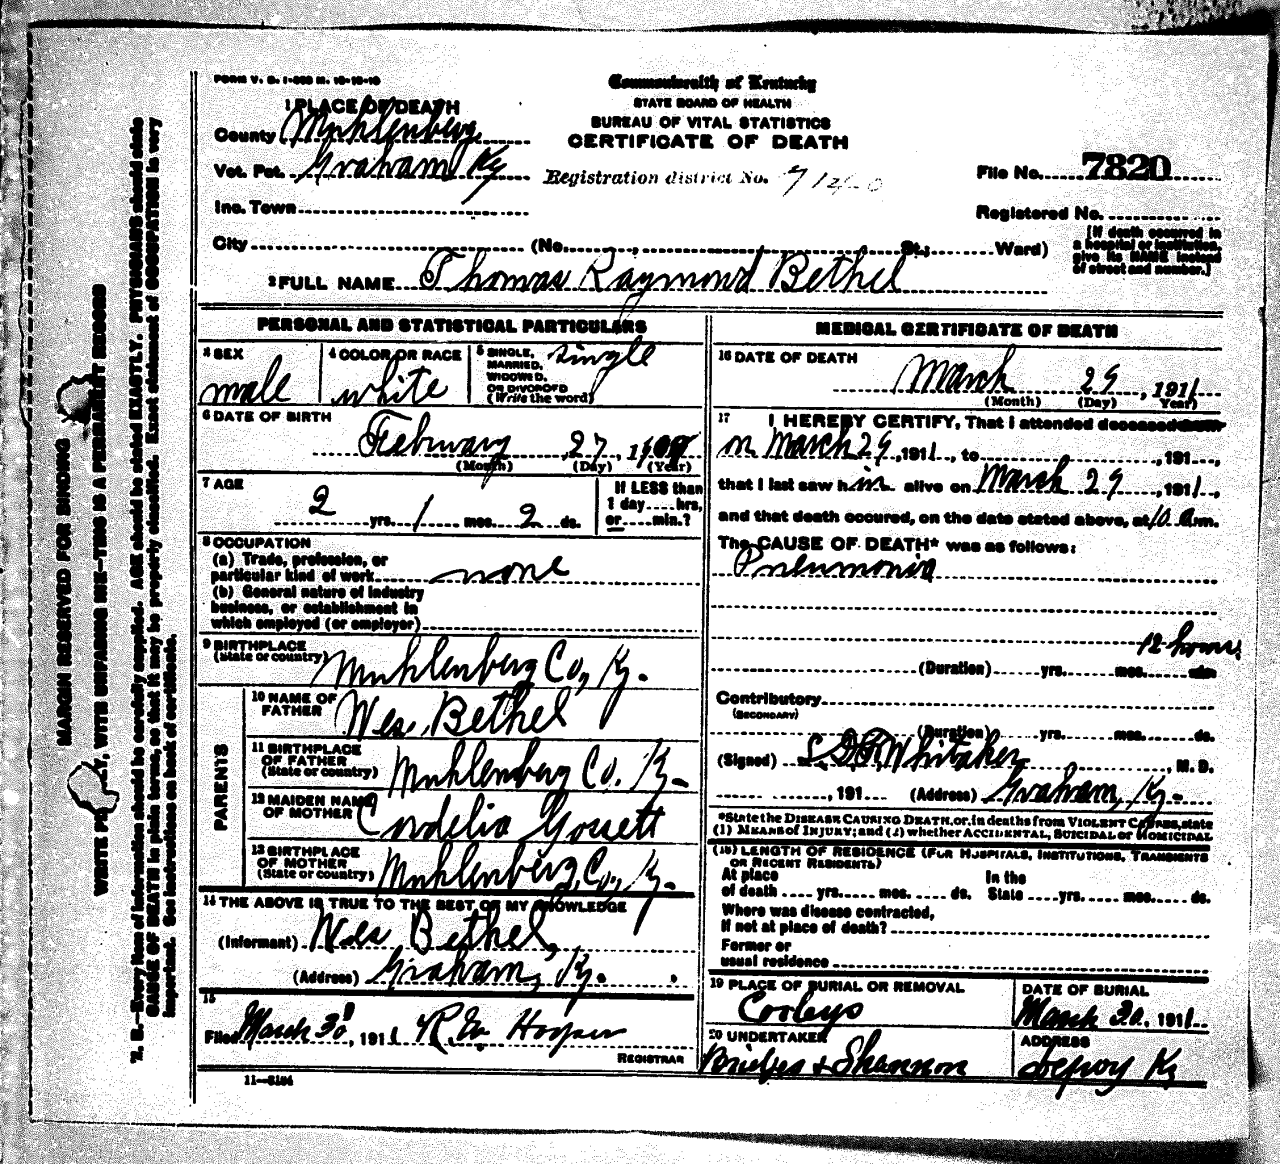 FORM V. S. 1-
Commonwealth of Kentucky
STATE BOARD OF HEALTH
BUREAU OF VITAL STATISTICS
CERTIFICATE OF DEATH
1 PLACE OF DEATH
County Muhlenberg
Vot. Pct. Graham Ky
Registration district No.
File No. 7820
Inc. Town
Registered No.
City (No. St.; Ward)
[If death occurred in
a hospital or institution,
give its NAME instead
of street and number.]
2 FULL NAME Thomas Raymond Bethel
PERSONAL AND STATISTICAL PARTICULARS
3 SEX male
4 COLOR OR RACE white
5 SINGLE, MARRIED, WIDOWED, OR DIVORCED (Write the word) single
6 DATE OF BIRTH
February 27, 19
(Month) (Day) (Year)
7 AGE
2 yrs. 1 mos. 2 ds.
If LESS than
1 day....hrs.
or....min.?
8 OCCUPATION
(a) Trade, profession, or
particular kind of work none
(b) General nature of industry
business, or establishment in
which employed (or employer)
9 BIRTHPLACE
(State or country) Muhlenberg Co, Ky.
PARENTS
10 NAME OF
FATHER Wes. Bethel
11 BIRTHPLACE
OF FATHER
(State or country) Muhlenberg Co. Ky.
12 MAIDEN NAME
OF MOTHER Cordelia Gossett
13 BIRTHPLACE
OF MOTHER
(State or country) Muhlenberg, Co., Ky.
14 THE ABOVE IS TRUE TO THE BEST OF MY KNOWLEDGE
(Informant) Wes Bethel,
(Address) Graham, Ky.
15
Filed March 30, 1911 Hooper
REGISTRAR
11—
MEDICAL CERTIFICATE OF DEATH
16 DATE OF DEATH
March 29, 1911
(Month) (Day) Year)
17 I HEREBY CERTIFY, That I attended deceased
on March 29, 1911, to , 191 ,
that I last saw him alive on March 29, 1911,
and that death occured, on the date stated above, at 10 am.
The CAUSE OF DEATH* was as follows:
Pneumonia
12 hours
(Duration) yrs. mos.
Contributory
(SECONDARY)
(Duration) yrs. mos. ds.
(Signed) Whitaker, M. D.
, 191 (Address) Graham, Ky.
*State the DISEASE CAUSING DEATH, or, in deaths from VIOLENT CAUSES, state
(1) MEANS OF INJURY; and (2) whether ACCIDENTAL, SUICIDAL or HOMICIDAL
(18) LENGTH OF RESIDENCE (FOR HOSPITALS, INSTITUTIONS, TRANSIENTS
OR RECENT RESIDENTS)
At place In the
of death yrs. mos. ds. State yrs. mos. ds.
Where was disease contracted,
If not at place of death?
Former or
usual residence
19 PLACE OF BURIAL OR REMOVAL
Cooleys
DATE OF BURIAL
March 30, 1911
20 UNDERTAKER
Bridges & Shannon
ADDRESS
Depoy Ky
MARGIN RESERVED FOR BINDING
WRITE PLAINLY, WITH UNFADING INK—THIS IS A PERMANENT RECORD
N. B.—Every item of information should be carefully supplied. AGE should be stated EXACTLY. PHYSICIANS should state
CAUSE OF DEATH in plain terms, so that it may be properly classified. Exact statement of OCCUPATION is very
important. See instructions on back of certificate.